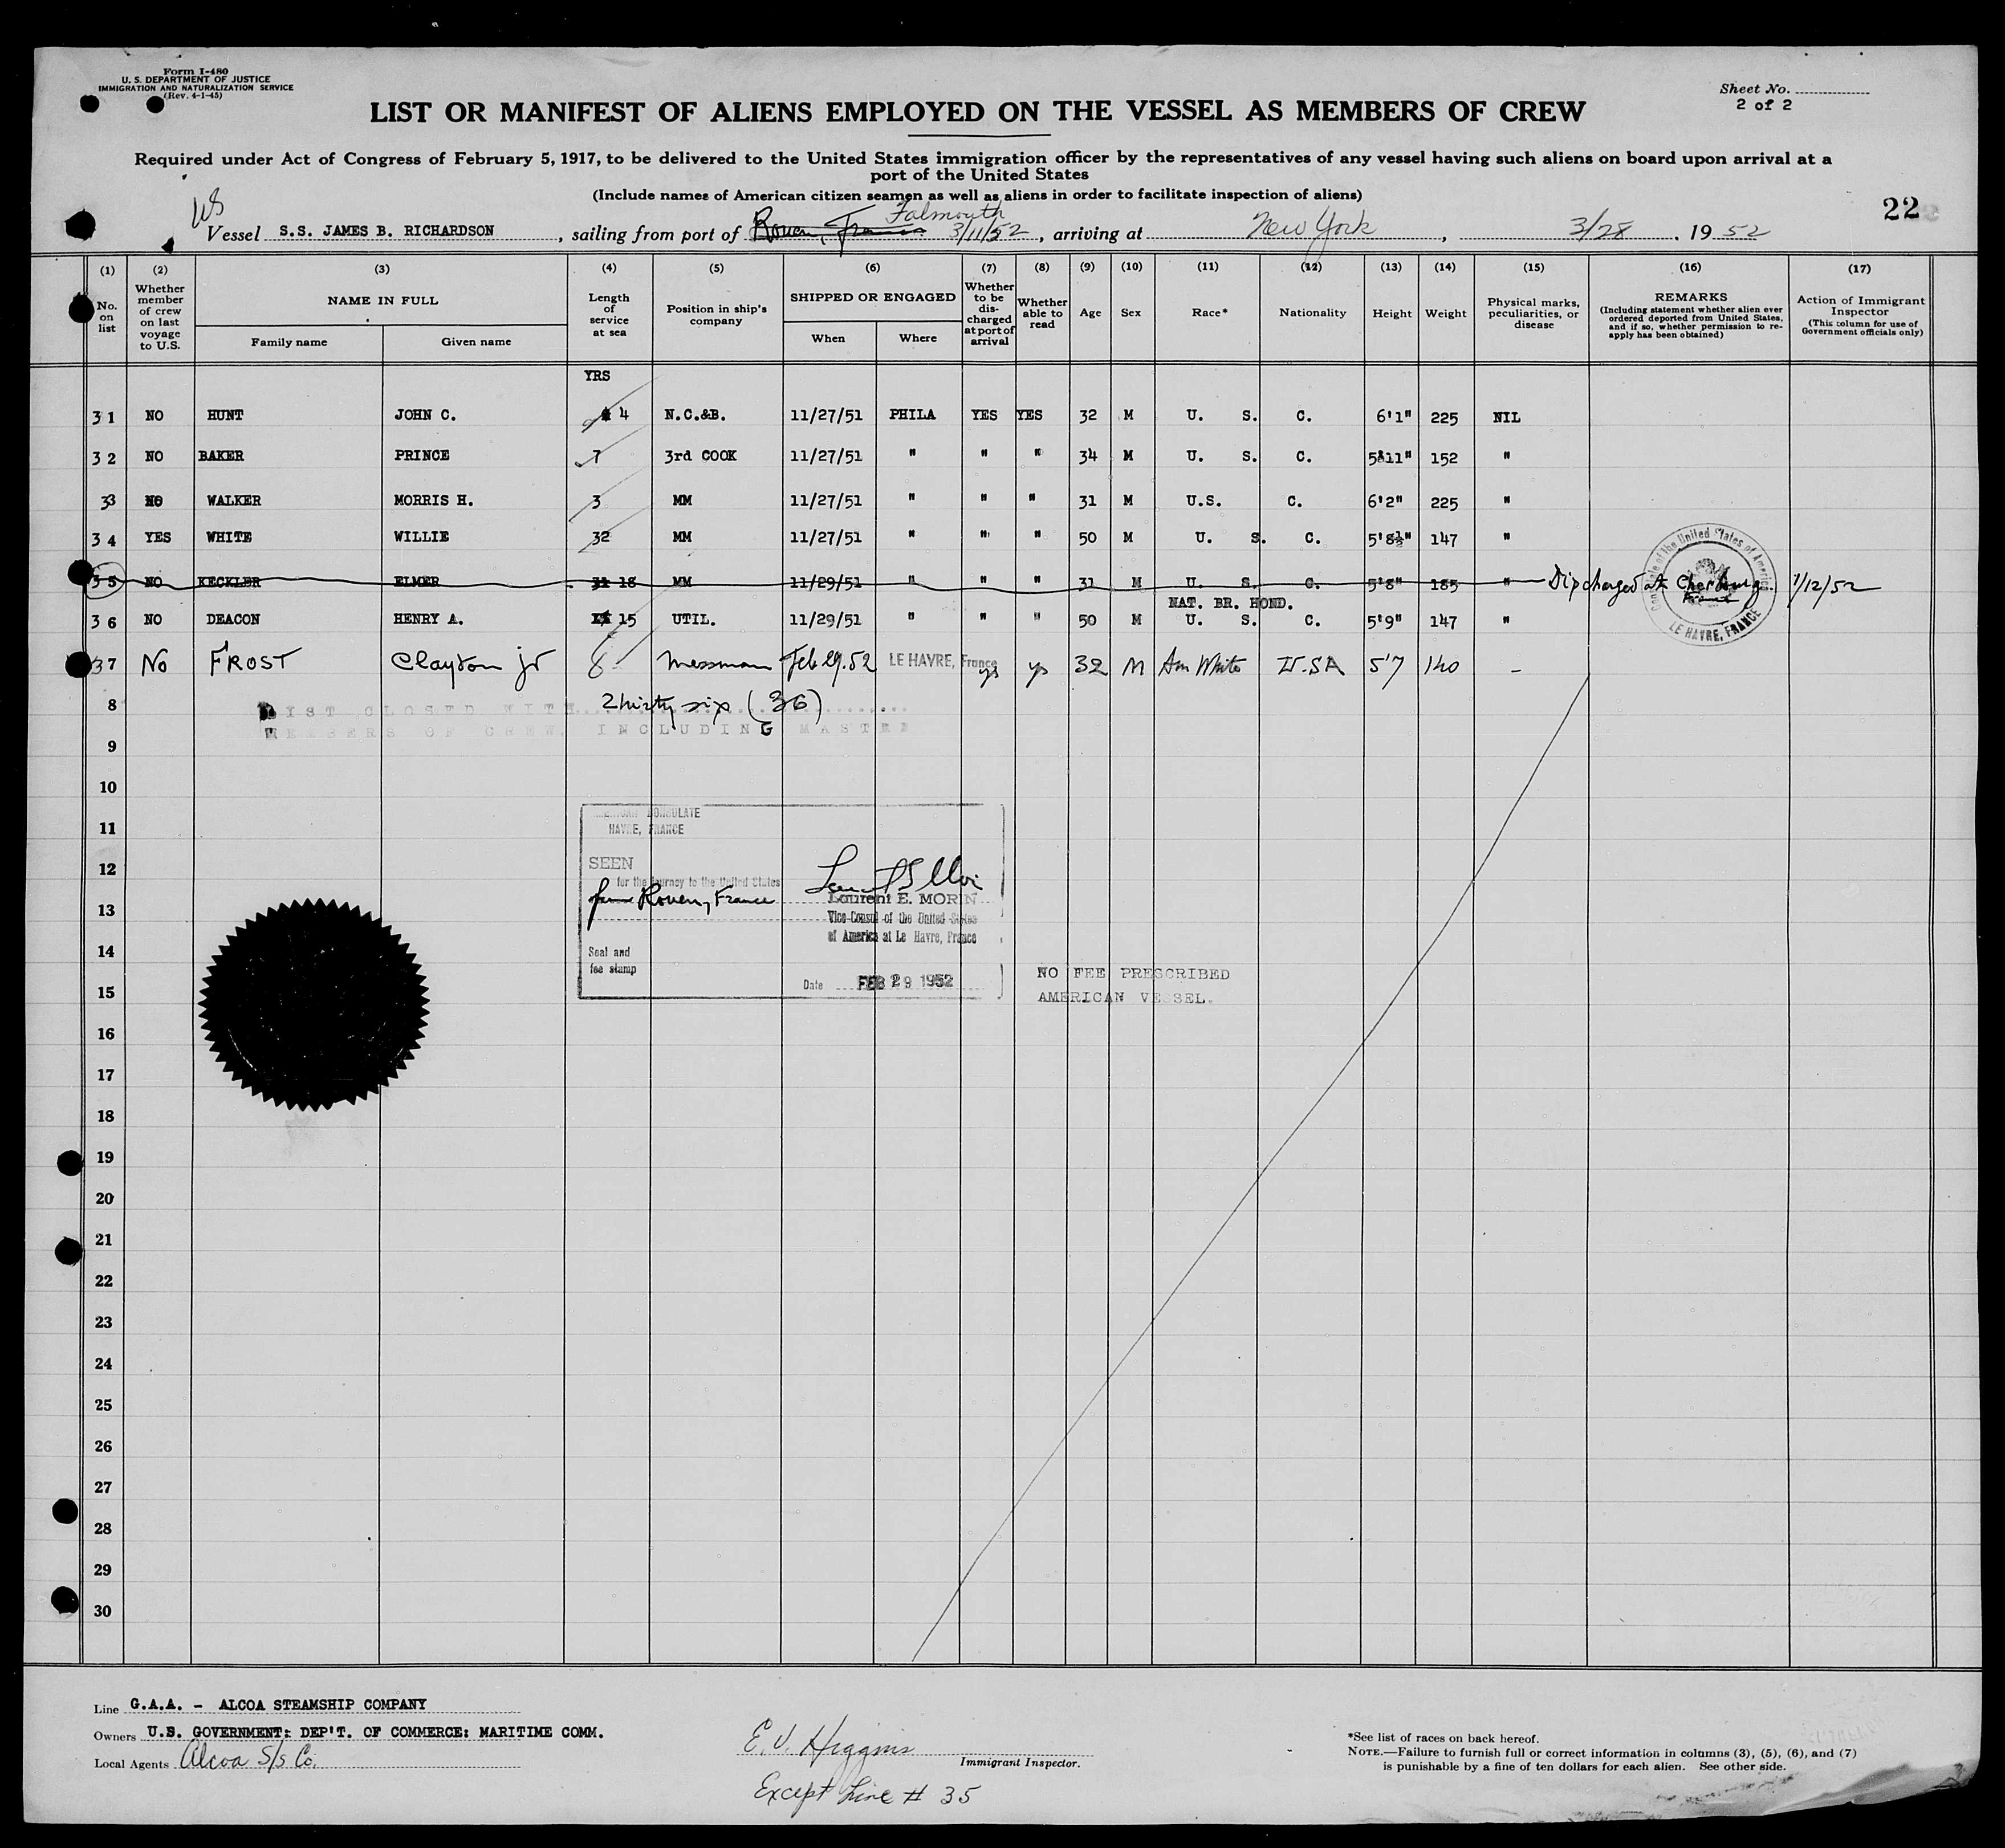 Form I-480
U. S. DEPARTMENT OF JUSTICE
IMMIGRATION AND NATURALIZATION SERVICE
(Rev. 4-1-45)
Sheet No.
2 of 2
LIST OR MANIFEST OF ALIENS EMPLOYED ON THE VESSEL AS MEMBERS OF CREW
Required under Act of Congress of February 5, 1917, to be delivered to the United States immigration officer by the representatives of any vessel having such aliens on board upon arrival at a
port of the United States
(Include names of American citizen seamen as well as aliens in order to facilitate inspection of aliens)
22
US
Falmouth
Vessel S.S. JAMES B. RICHARDSON, sailing from port of Rouen, France 3/11/52, arriving at New York, 3/28, 1952
(1) (2) (3) (4) (5) (6) (7) (8) (9) (10) (11) (12) (13) (14) (15) (16) (17)
No. on list
Whether member of crew on last voyage to U.S.
NAME IN FULL
Family name
Given name
Length of service at sea
Position in ship's company
SHIPPED OR ENGAGED
When
Where
Whether to be discharged at port of arrival
Whether able to read
Age
Sex
Race*
Nationality
Height
Weight
Physical marks, peculiarities, or disease
REMARKS
(Including statement whether alien ever ordered deported from United States, and if so, whether permission to re-apply has been obtained)
Action of Immigrant Inspector
(This column for use of Government officials only)
YRS
31 NO HUNT JOHN C. 4 N.C.&B. 11/27/51 PHILA YES YES 32 M U. S. C. 6'1" 225 NIL
32 NO BAKER PRINCE 7 3rd COOK 11/27/51 " " " 34 M U. S. C. 5'11" 152 "
33 NO WALKER MORRIS H. 3 MM 11/27/51 " " " 31 M U.S. C. 6'2" 225 "
34 YES WHITE WILLIE 32 MM 11/27/51 " " " 50 M U. S. C. 5'8½" 147 "
35 NO KECKLER ELMER 18 MM 11/29/51 " " " 31 M U. S. C. 5'8" 185 " Discharged at Cherbourg France 1/12/52
Consulate of the United States of America
LE HAVRE, FRANCE
NAT. BR. HOND.
36 NO DEACON HENRY A. 15 UTIL. 11/29/51 " " " 50 M U. S. C. 5'9" 147 "
37 No FROST Clayton jr 8 Messman Feb 29.52 LE HAVRE, France ys ys 32 M Am White U.SA 5'7 140 -
8 LIST CLOSED WITH Thirty six (36)
MEMBERS OF CREW. INCLUDING MASTER
9
10
11
12
13
14
15
16
17
18
19
20
21
22
23
24
25
26
27
28
29
30
AMERICAN CONSULATE
HAVRE, FRANCE
SEEN
for the journey to the United States
from Rouen, France
Laurent E. MORIN
Vice-Consul of the United States
of America at Le Havre, France
Seal and
fee stamp
Date FEB 29 1952
NO FEE PRESCRIBED
AMERICAN VESSEL.
Line G.A.A. - ALCOA STEAMSHIP COMPANY
Owners U.S. GOVERNMENT: DEP'T. OF COMMERCE: MARITIME COMM.
Local Agents Alcoa S/s Co.
E.V. Higgins
Immigrant Inspector.
Except Line # 35
*See list of races on back hereof.
NOTE.—Failure to furnish full or correct information in columns (3), (5), (6), and (7)
is punishable by a fine of ten dollars for each alien. See other side.